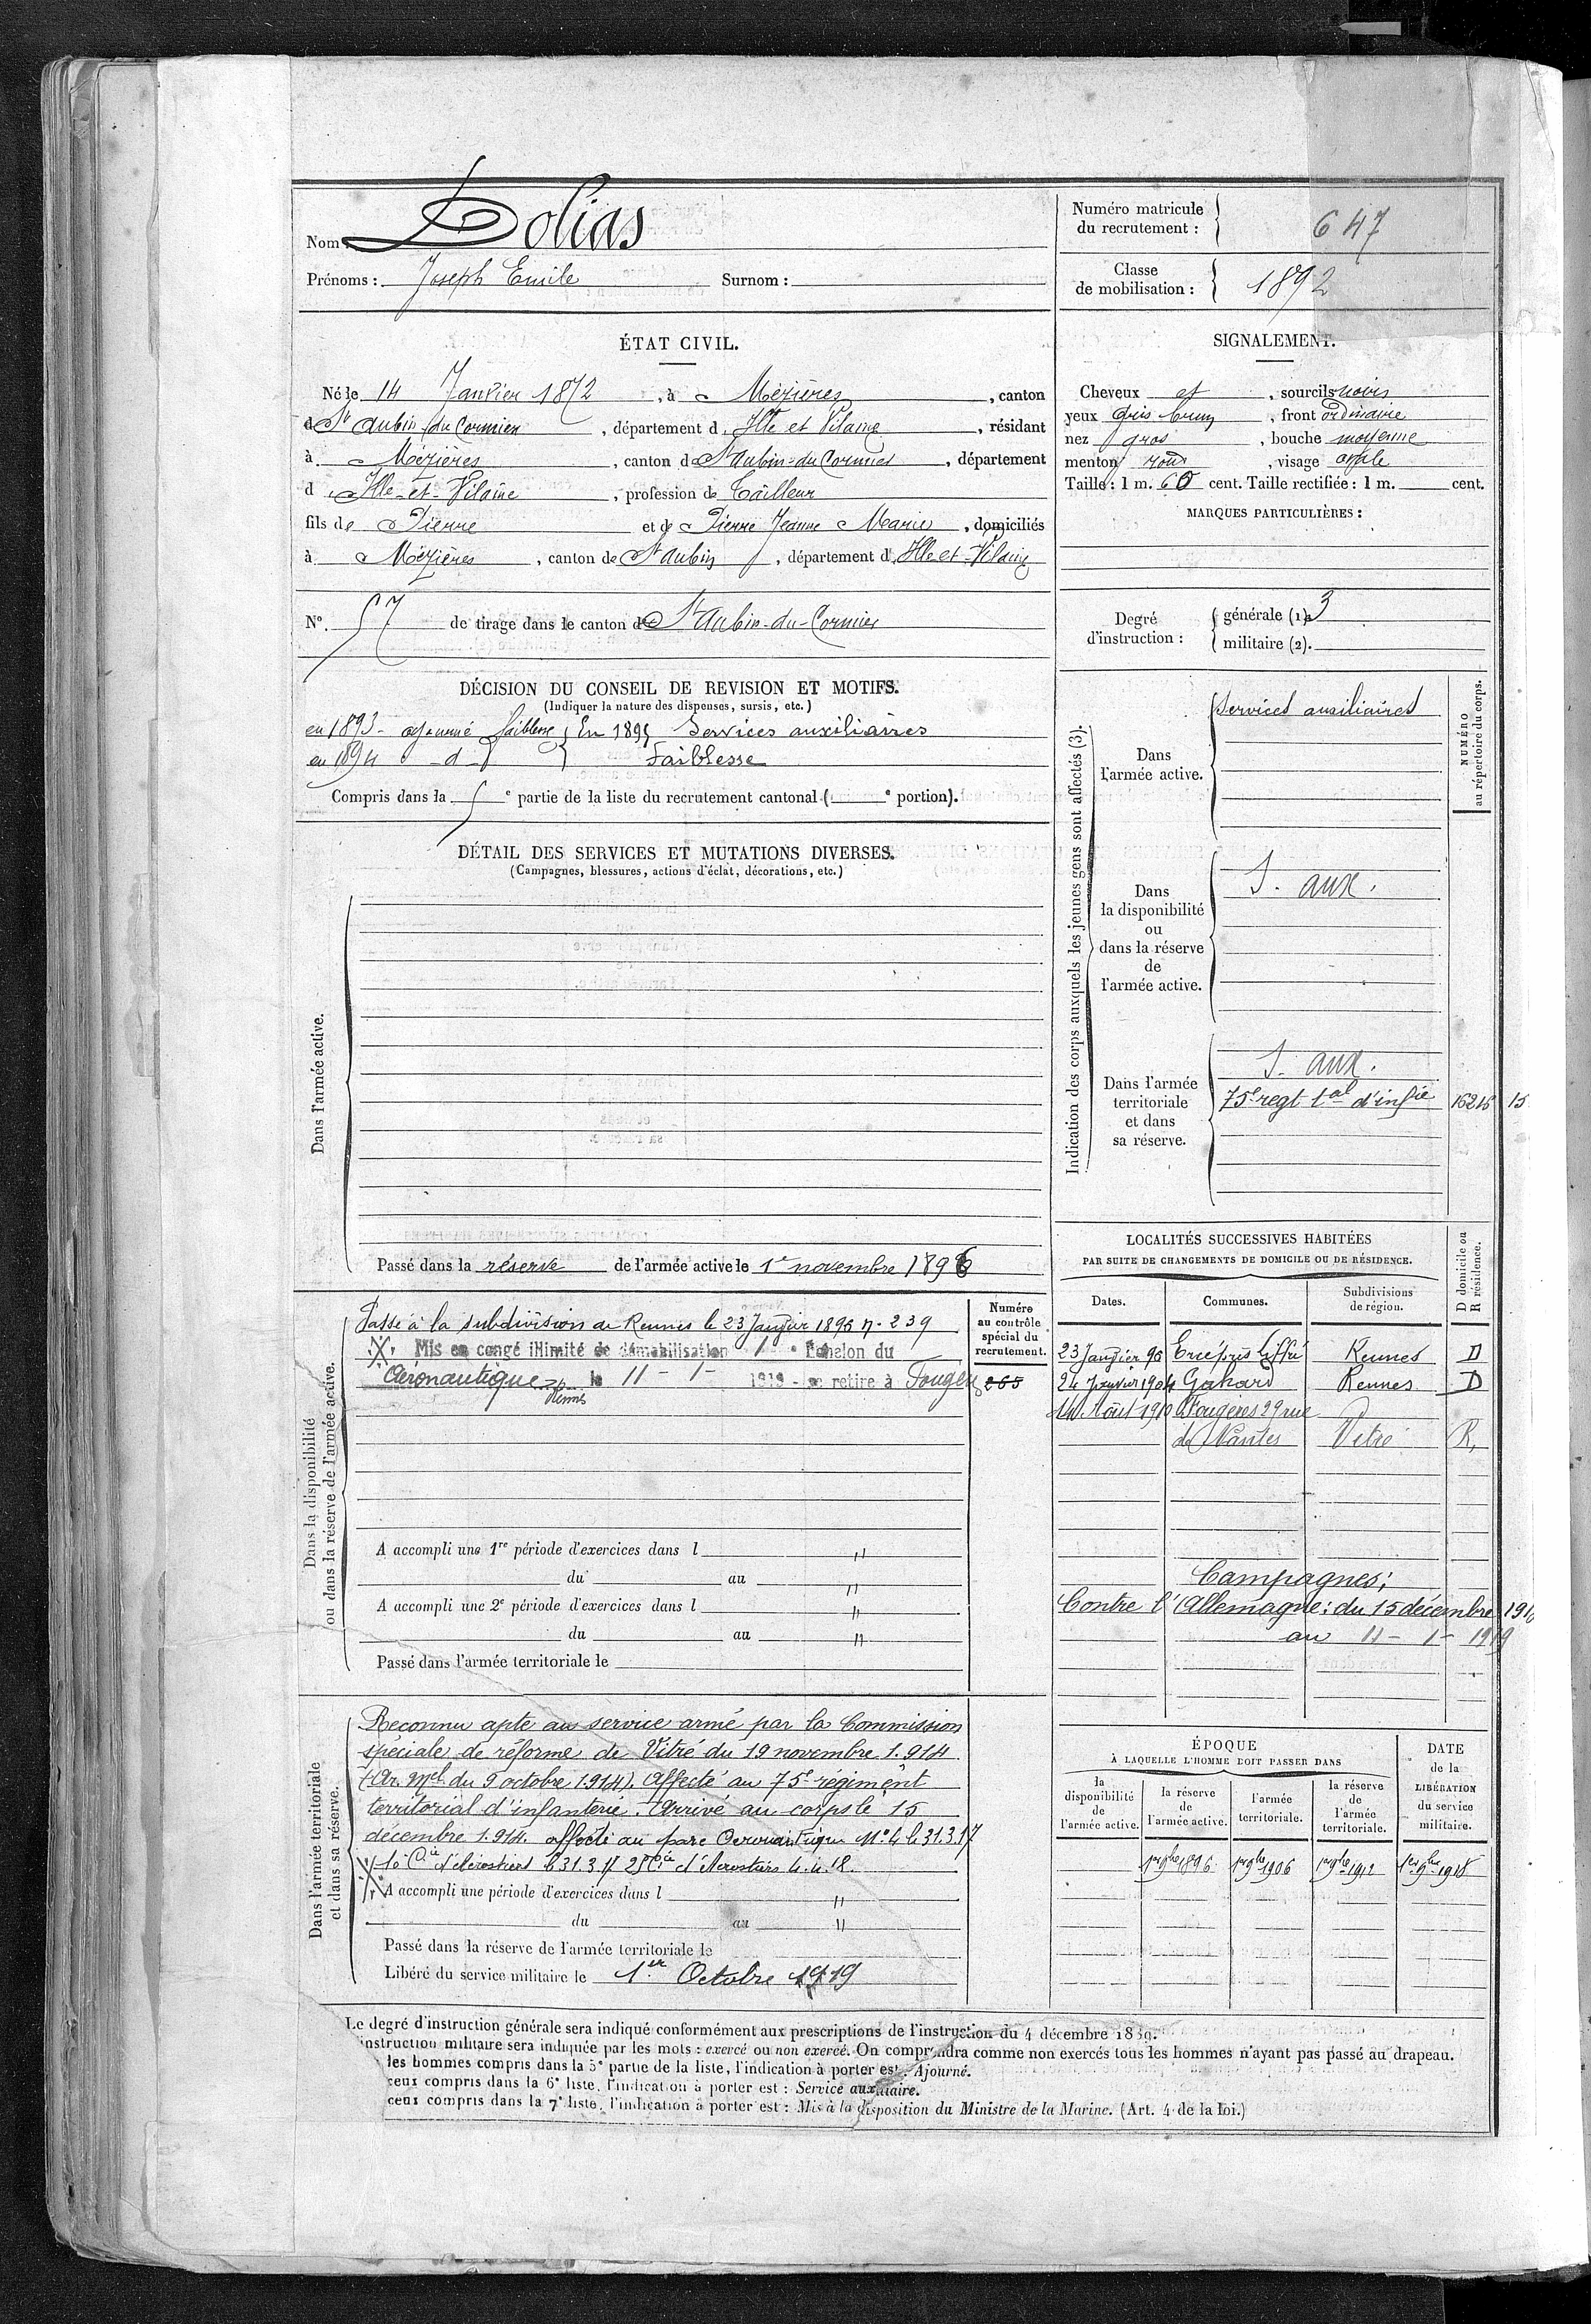 Nom Dolias
Prénoms : Joseph Emile Surnom :
Numéro matricule du recrutement : 647
Classe de mobilisation : 1892
ÉTAT CIVIL.
Né le 14 Janvier 1872, à Mézières, canton
de St Aubin du Cormier, département d Ille et Vilaine, résidant
à Mézières, canton de St Aubin-du-Cormier, département
d Ille-et-Vilaine, profession de Tailleur
fils de Pierre et de Pierre Jeanne Marie, domiciliés
à Mézières, canton de St Aubin, département d' Ille et Vilaine
N° 57 de tirage dans le canton de St Aubin-du-Cormier
SIGNALEMENT.
Cheveux et, sourcils noirs
yeux gris brun, front ordinaire
nez gros, bouche moyenne
menton rond, visage ovale
Taille : 1 m. 60 cent. Taille rectifiée : 1 m. cent.
MARQUES PARTICULIÈRES :
Degré d'instruction : générale (1) 3
militaire (2).
DÉCISION DU CONSEIL DE REVISION ET MOTIFS.
(Indiquer la nature des dispenses, sursis, etc.)
en 1893 - ajourné faiblesse } En 1895 Services auxiliaires
en 1894 - d - } Faiblesse
Compris dans la 5 e partie de la liste du recrutement cantonal ( e portion).
DÉTAIL DES SERVICES ET MUTATIONS DIVERSES.
(Campagnes, blessures, actions d'éclat, décorations, etc.)
Dans l'armée active.
Passé dans la réserve de l'armée active le 1er novembre 1896
Indication des corps auxquels les jeunes gens sont affectés (3).
NUMÉRO au répertoire du corps.
Dans l'armée active.
Services auxiliaires
Dans la disponibilité ou dans la réserve de l'armée active.
S. aux.
Dans l'armée territoriale et dans sa réserve.
S. aux.
75e regt tal d'infie 15
LOCALITÉS SUCCESSIVES HABITÉES
PAR SUITE DE CHANGEMENTS DE DOMICILE OU DE RÉSIDENCE.
Dates. Communes. Subdivisions de région. D domicile ou R résidence.
23 Janvier 96 Ercé près Liffré Rennes D
24 Janvier 1904 Gahard Rennes D
14 Août 1910 Fougères 29 rue
de Nantes Vitré R.
Campagnes :
Contre l'Allemagne : du 15 décembre 191
au 11 - 1 - 1919
Dans la disponibilité ou dans la réserve de l'armée active.
Numéro au contrôle spécial du recrutement.
Passé à la subdivision de Rennes le 23 Janvier 1896 n. 239
Mis en congé illimité de démobilisation 1 Echelon du
Aéronautique Rennes le 11 - 1 - 1919 - se retire à Fougères
265
A accompli une 1re période d'exercices dans l "
du au "
A accompli une 2e période d'exercices dans l "
du au "
Passé dans l'armée territoriale le
Dans l'armée territoriale et dans sa réserve.
Reconnu apte au service armé par la Commission
spéciale de réforme de Vitré du 19 novembre 1.914
(Ar. Mel du 9 octobre 1.914). Affecté au 75e régiment
territorial d'infanterie. Arrivé au corps le 15
décembre 1.914. affecté au parc Aeronautique N° 4 le 31.3.17
Cie d'Aerostiers le 31.3.17 25 Cie d'Aerostiers 4.4.18.
A accompli une période d'exercices dans l "
du au "
Passé dans la réserve de l'armée territoriale le
Libéré du service militaire le 1er Octobre 1919
ÉPOQUE
À LAQUELLE L'HOMME DOIT PASSER DANS
DATE de la LIBÉRATION du service militaire.
la disponibilité de l'armée active. la réserve de l'armée active. l'armée territoriale. la réserve de l'armée territoriale.
1er 9bre 1896 1er 9bre 1906 1er 9bre 1912 1er 9bre 1918
Le degré d'instruction générale sera indiqué conformément aux prescriptions de l'instruction du 4 décembre 1889.
instruction militaire sera indiquée par les mots : exercé ou non exercé. On comprendra comme non exercés tous les hommes n'ayant pas passé au drapeau.
les hommes compris dans la 5e partie de la liste, l'indication à porter est : Ajourné.
ceux compris dans la 6e liste, l'indication à porter est : Service auxiliaire.
ceux compris dans la 7e liste, l'indication à porter est : Mis à la disposition du Ministre de la Marine. (Art. 4 de la loi.)